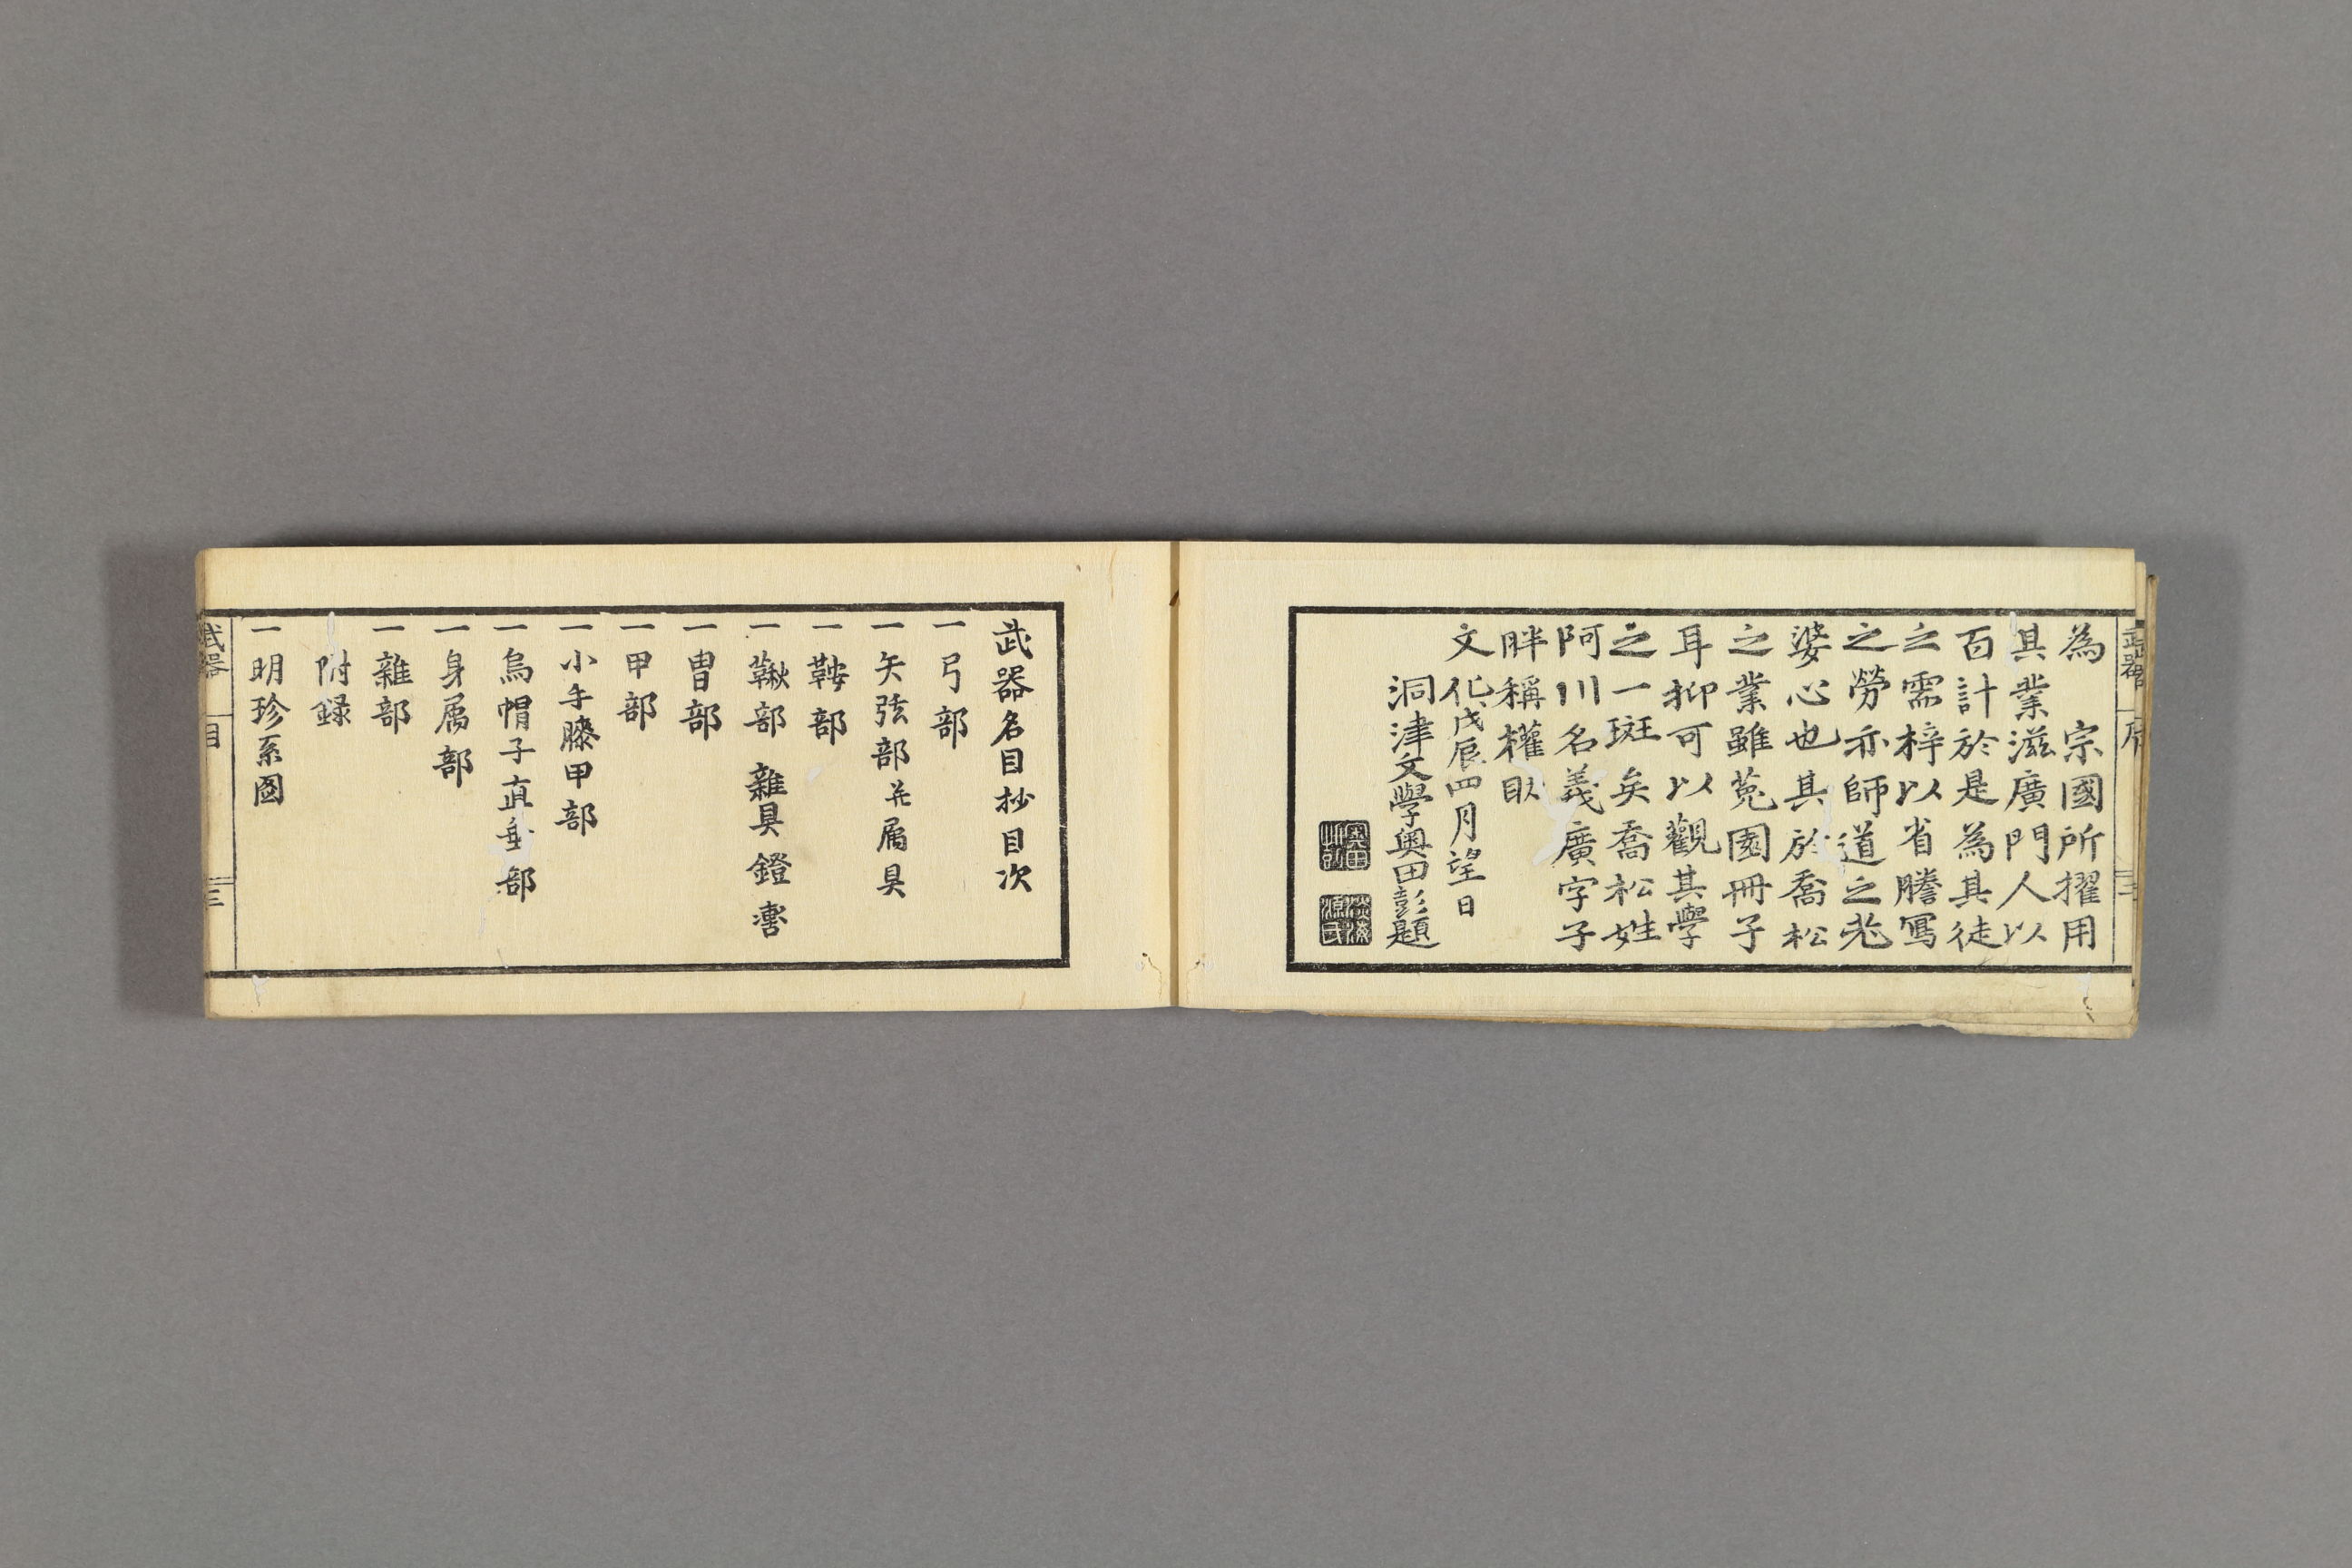 為　宗國所擢用
其業滋廣門人以
百計於是為其徒
之需梓以省謄寫
之勞亦師道之老
婆心也其於喬松
之業雖菟園冊子
耳抑可以觀其學
之一斑矣喬松姓
阿川名義廣字子
胖稱權臥
文化戊辰四月望日
洞津文學奥田彭題
武器名目抄目次
一弓部
一矢弦部并属具
一鞍部
一鞦部　雜具　鐙　轡
一冑部
一甲部
一小手膝甲部
一烏帽子直垂部
一身属部
一雜部
附録
一明珍系圖
武器　目　三